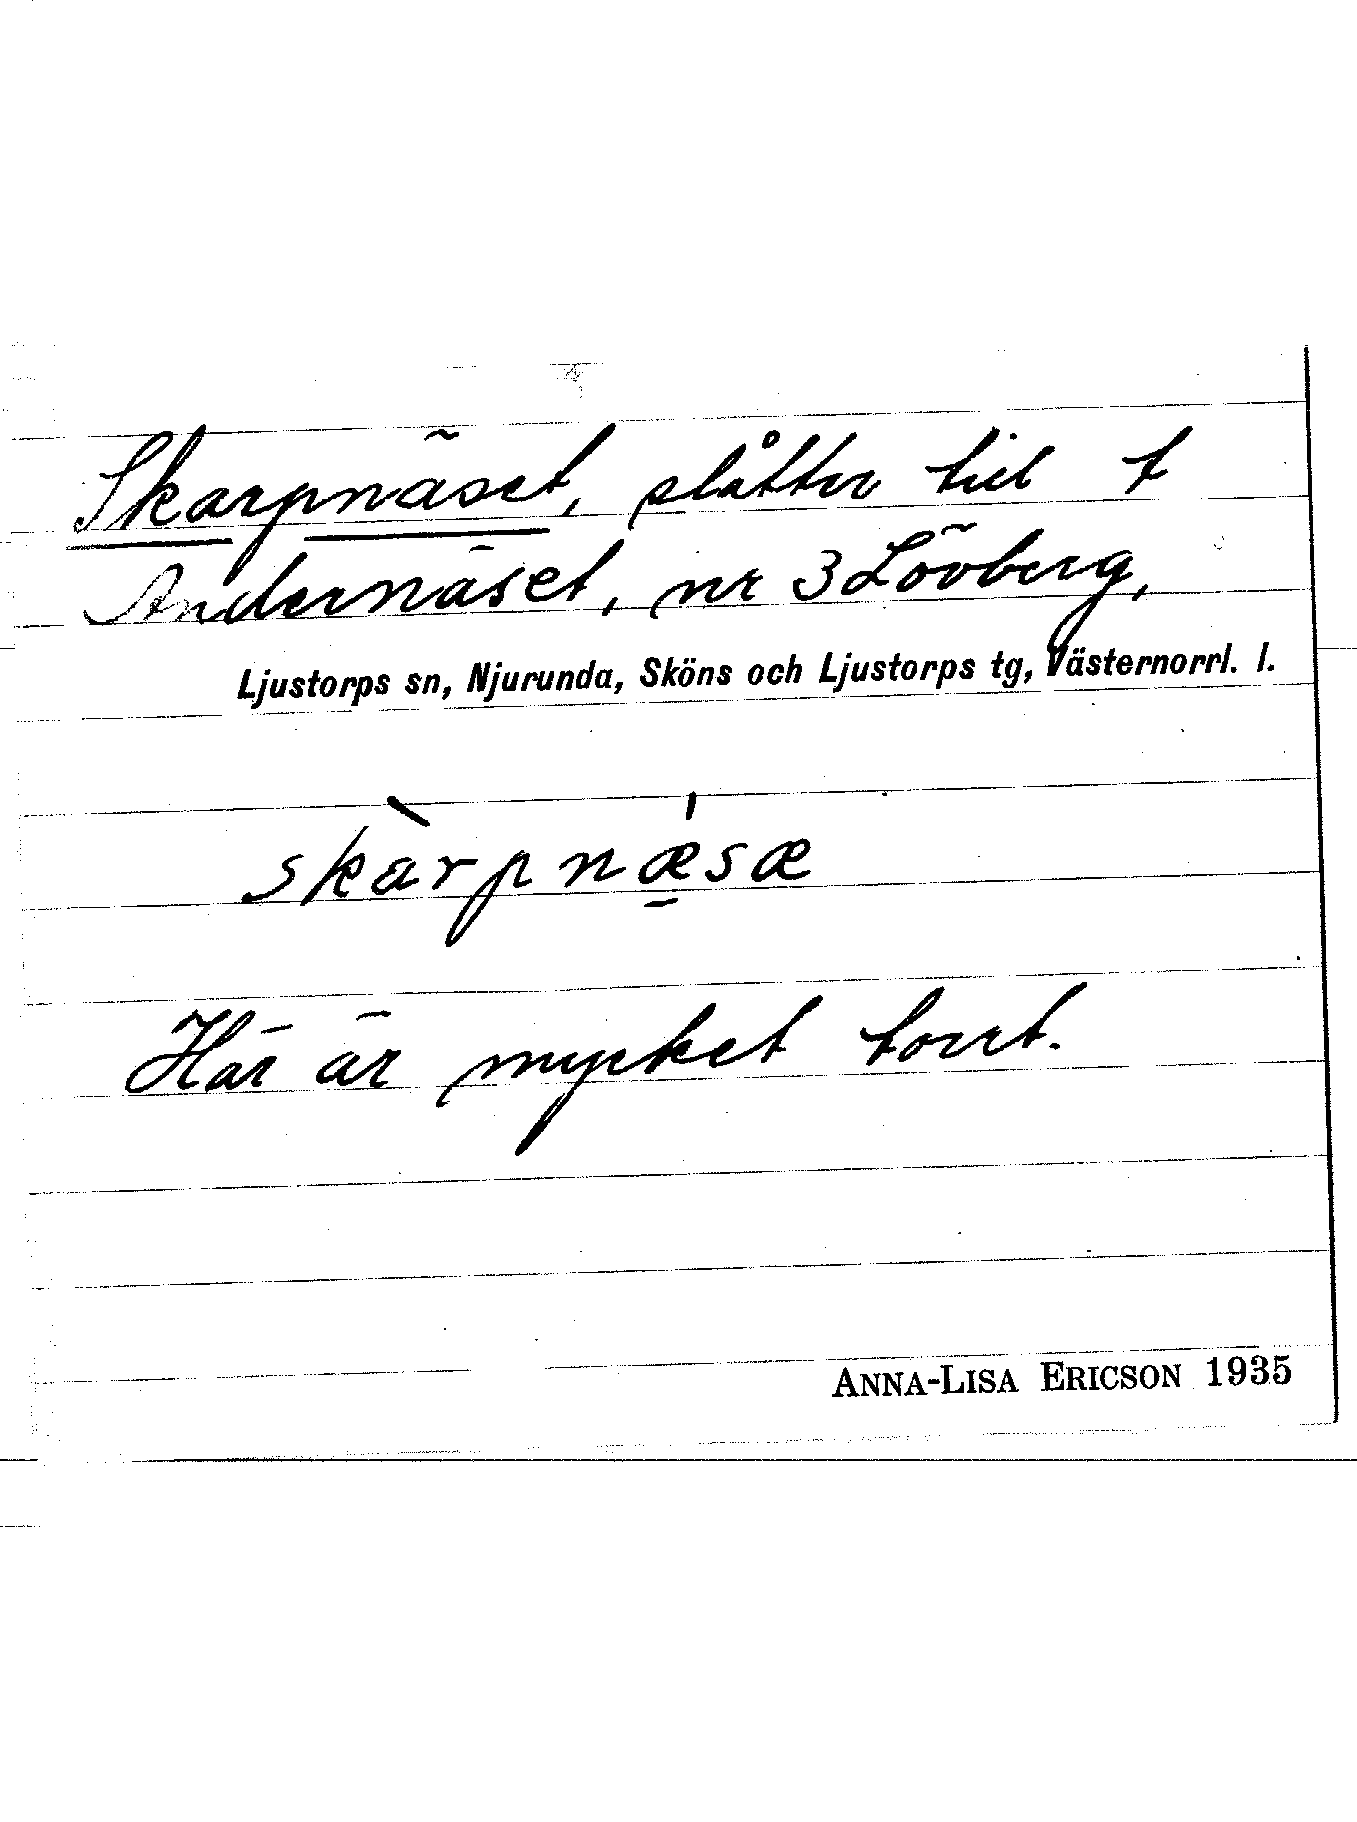 Skarpnäset, slåtter till t
Andernäset, nr 3 Lövberg,
Ljustorps sn, Njurunda, Sköns och Ljustorps tg, Västernorrl. l.
skàrpnǽ̱sæ
Här är mycket torrt.
ANNA-LISA ERICSON 1935